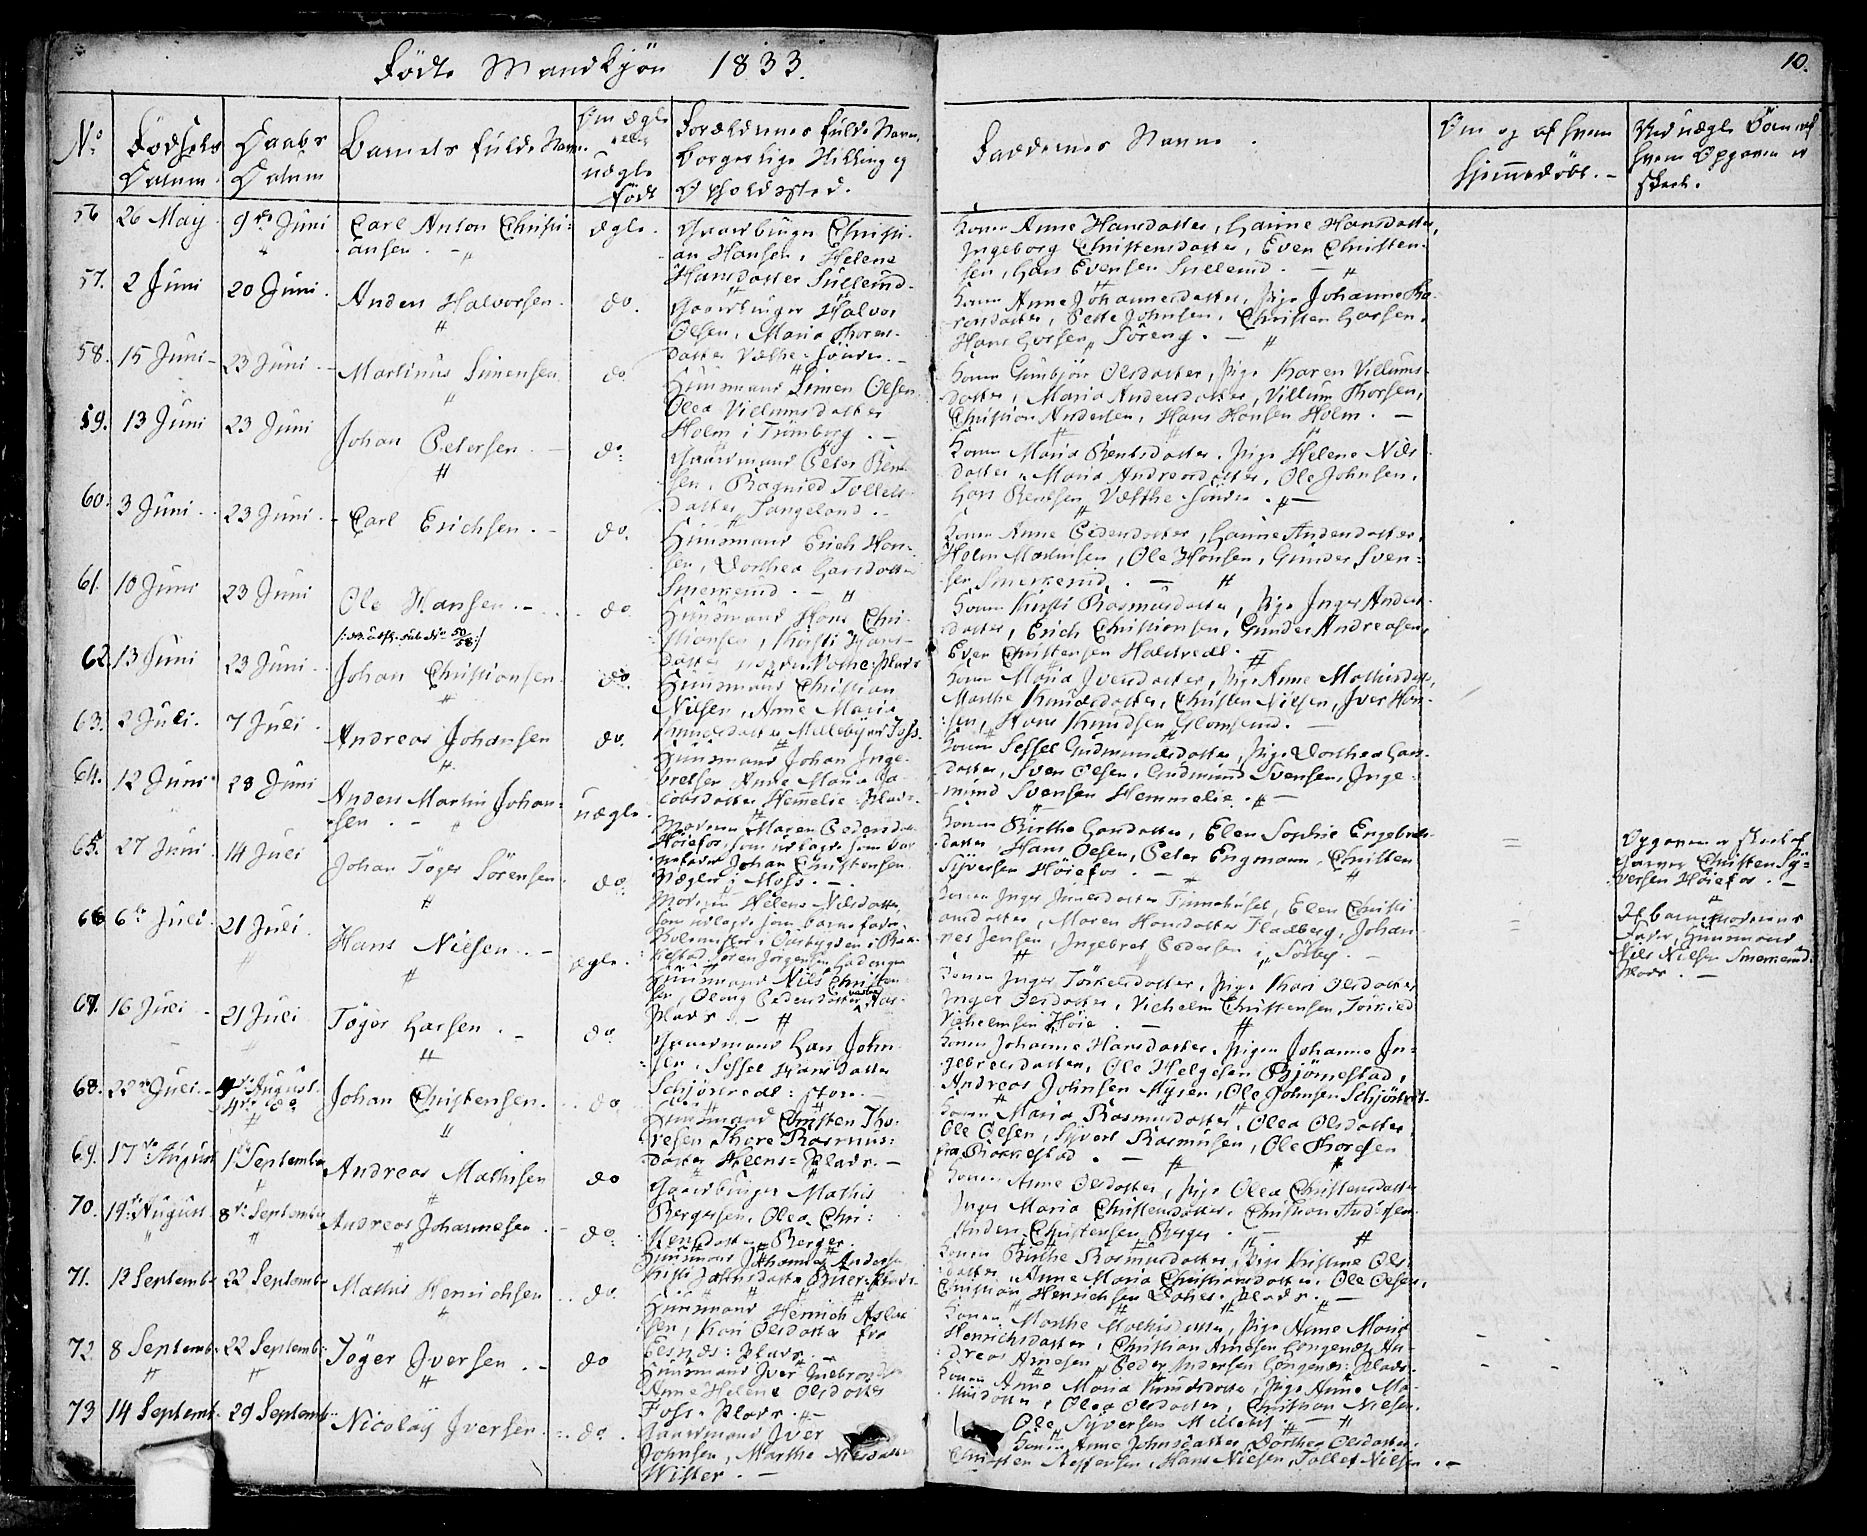 Födte Mandkjøn 1833.
10.
No. Födsels Datum. Daabs Datum Barnets fulde Navn. Om ægte eller uægte födt Forældrenes fulde Navn, Borgerlige Stilling og Opholdssted.
Faddernes Navne. Om og af hvem hjemmedöbt. Ved uægte Börn af hvem Opgaven er skeet.
56 26 May 9de Juni Carl Anton Christi-
ansen ægte.
Gaardbruger Christi-
an Hansen, Helene
Hansdatter Sullerud.
Konen Anne Hansdatter, Hanne Hansdatter,
Ingeborg Christensdatter, Even Christen-
sen, Lars Evensen Sullerud.
57. 2 Juni 20 Juni. Anders Halvorsen do.
Gaardbruger Halvor
Olsen, Maria Thores-
datter Væthe-söndre.
Konen Anne Johannesdatter, Pige Johanne Tho-
resdatter, Peder Johnsen, Christen Larsen,
Hans Larsen Söreng.
58. 15 Juni 23 Juni Martinus Simensen do
Huusmand Simen Olsen
Olea Villumsdatter
Holm i Trömborg.
Konen Gunbjör Olsdatter, Pige Karen Villums-
datter, Maria Andersdatter, Villum Thorsen,
Christian Andersen, Hans Hansen Holm.
59. 13 Juni 23 Juni Johan Petersen do.
Gaardmand Peter Bent-
sen, Ragnild Tollefs-
datter Langeland.
Konen Maria Bentsdatter, Pige Helene Nils-
datter, Maria Andreasdatter, Ole Johnsen,
Lars Bentsen Væthe-söndre.
60. 3 Juni 23 Juni Carl Erichsen. do.
Huusmand Erich Han-
sen, Dorthea Larsdatter
Smerkerud.
Konen Anne Pedersdatter, Hanne Andersdatter,
Holm Martinsen, Ole Hansen, Gunder Sven-
sen Smerkerud.
61. 10 Juni 23 Juni Ole Hansen. do
Huusmand Hans Chri-
stiansen, Kirsti Hans-
datter
Konen Kirsti Rasmusdatter, Pige Inger Anders-
datter, Erich Christiansen, Gunder Andreasen,
Even Christensen Haldtvedt.
62. 13 Juni 23 Juni Johan Christiansen do.
Huusmand Christian
Nilsen, Anne Maria
Knudsdatter Millebyes Foss.
Konen Maria Iversdatter, Pige Anne Mathisdatter,
Marthe Knudsdatter, Christen Nilsen, Iver Han-
sen, Hans Knudsen Glomsrud.
63. 2 Juli. 7 Juli. Andreas Johansen do.
Huusmand Johan Inge-
bretsen Anne Maria Ja-
cobsdatter Hemelie-Plads.
Konen Sessel Gudmundsdatter, Pige Dorthea Lars-
datter, Sven Olsen, Gudmund Svensen, Inge-
mund Svensen Hemmelie.
64. 12 Juni 28 Juni Anders Martin Johan-
sen. uægte.
Moderen Maren Pedersdatter
Höiefos, som udlagde som bar-
nefader Johan Christensen
Vægter i Moss.
Konen Birthe Larsdatter, Elen Sophie Engebrets-
datter Hans Olsen, Peter Engmann, Christen
Syversen Höiefos.
Opgaven er skeet af
Farver Christen Sy-
versen Höiefos.
65. 27 Juni 14 Juli Johan Töger Sörensen do.
Moderen Helene Nilsdatter,
som udlagde som barnefader
Sören Jörgensen
Konen Inger Finnehuset, Elen Christi-
ansdatter, Maren Hansdatter Fladberg, Johan-
nes Jensen, Ingebret Pedersen i Sötby.
Af barnemoderens
Fader, Huusmand
Nils Nilsen Smerkerud
Plads.
66 6te Juli. 21 Juli Hans Nielsen. ægte.
Huusmand Nils Christen-
sen, Oleug Pedersdatter
Plads.
Konen Inger Torkelsdatter, Pige Kari Olsdatter
Inger Olsdatter, Vilhelm Christensen, Torkild
Vilhelmsen Höie
67. 16 Juli 21 Juli Töger Larsen. do
Gaardmand Lars John-
sen, Sessel Hansdatter
Schjörtvedt: store.
Konen Johanne Hansdatter, Pigen Johanne In-
gebretsdatter, Ole Helgesen Björnestad,
Andreas Johnsen Mysen, Ole Johnsen Schjörtvedt.
68. 22de Juli. 4de August. Johan Christensen. do
Huusmand Christen Tho-
resen Thore Rasmus-
datter Plads.
Konen Maria Rasmusdatter, Olea Olsdatter
Ole Olsen, Syvert Rasmusen, Ole Thoresen
fra Rakkestad.
69. 17de August 1ste September Andreas Mathisen do
Gaardbruger Mathis
Bergersen, Olea Chri-
stensdatter Berger.
Konen Anne Olsdatter, Pige Olea Christensdatter
Inger Maria Christensdatter, Christian Andersen
Anders Christensen Berger.
70. 19de August 8de September Andreas Johannesen. do
Huusmand Johannes Andersen
Kirsti Johnsdatter
Konen Birthe Rasmusdatter, Pige Kirstine Ols-
datter, Anne Maria Christiansdatter, Ole Olsen,
Christian Henrichsen
71. 12 Septembr 22 Septembr Mathis Henrichsen do.
Huusmand Henrich Aslak-
sen, Kari Olsdatter fra
Plads.
Konen Marthe Mathisdatter, Pige Anne Maria
Henrichsdatter, Christian Arnesen Langenæs, An-
dreas Arnesen, Peder Andersen Langenæs-Plads.
72 8 Septembr. 22 Septembr. Töger Iversen. do
Huusmand Iver
Anne Helene Olsdatter
Foss-Plads.
Konen Anne Maria Knudsdatter, Pige Anne Ma-
thisdatter, Olea Olsdatter, Christian Nielsen,
Ole Syversen Millebye.
73 14 Septembr. 29 Septembr. Nicolay Iversen. do.
Gaardmand Iver
Johnsen, Marthe Nilsdatter
Wister.
Konen Anne Johnsdatter, Dorthea Olsdatter,
Christen Steffensen, Hans Nielsen, Tollef Nielsen